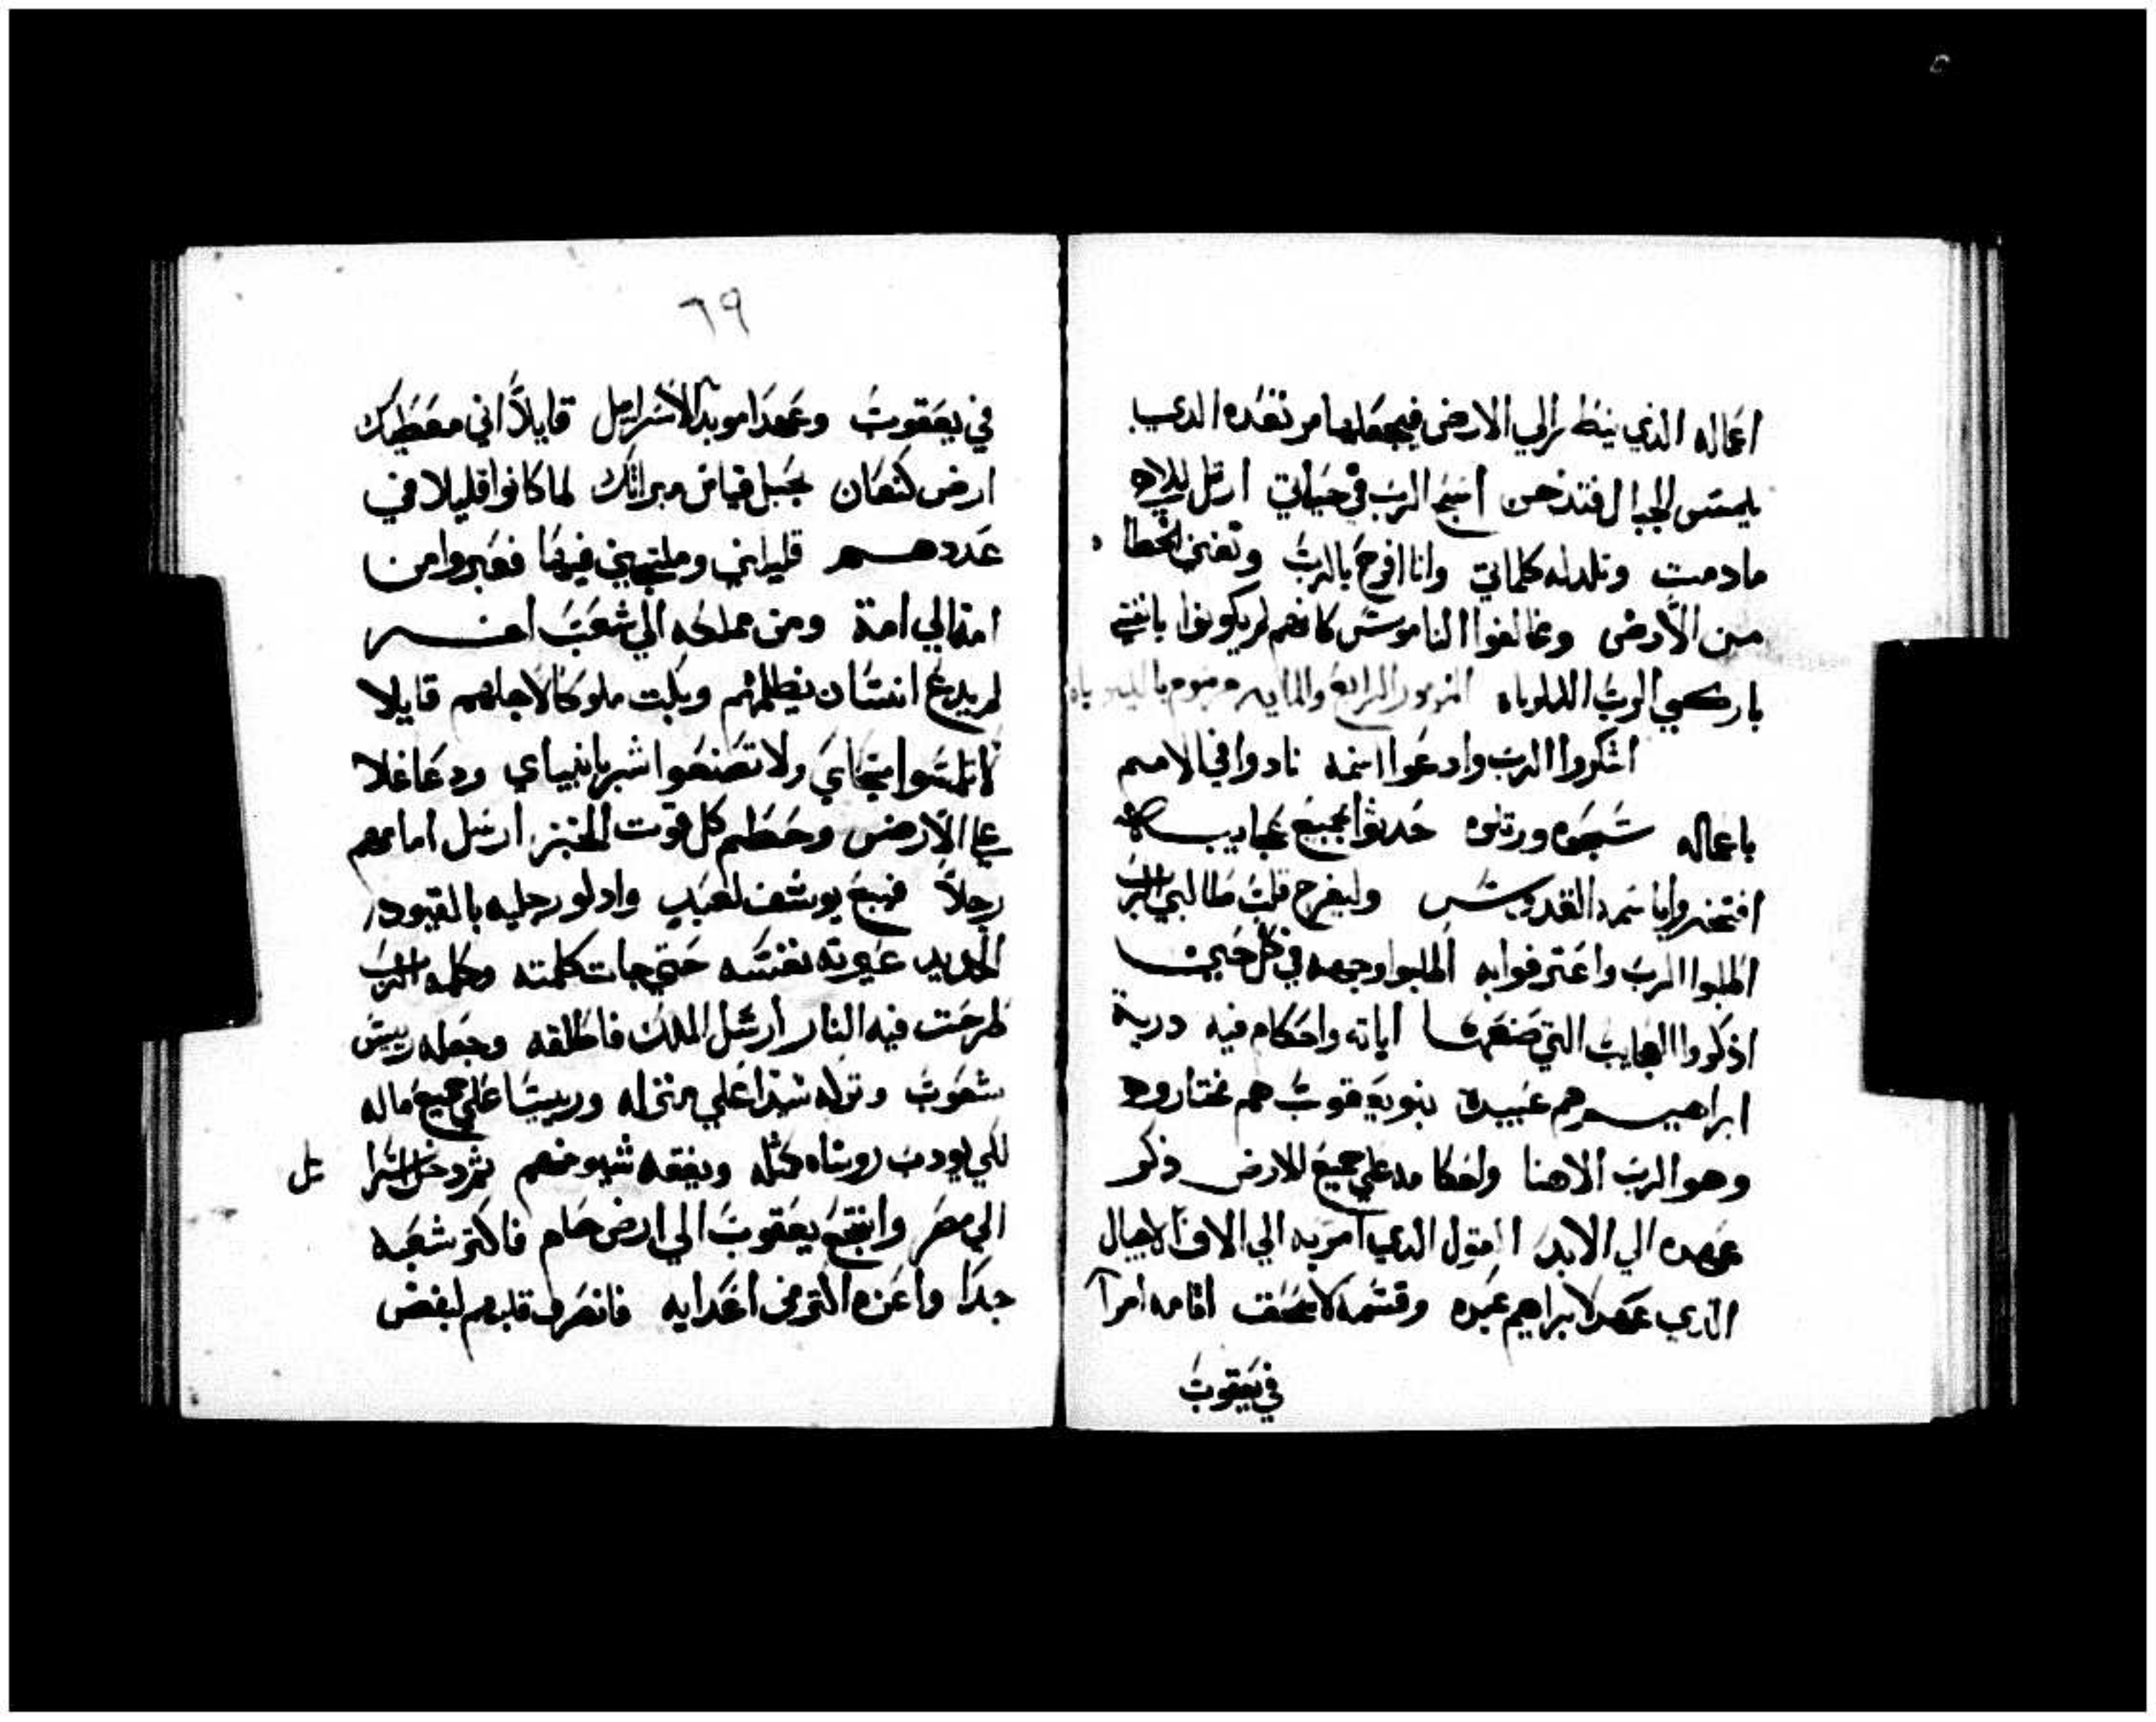 اعماله الذي ينظر الي الارض فيجعلها مرتعده الدي
يمس الجبال فتدخن اسبح الرب في حياتي ارتل للاه
مادمت وتلدله كلماتي وانا افرح بالرب وتفني الخطا
من الارض ومخالفوا الناموس كانهم لم يكونوا يا نفسي
باركي الرب الليلوياه المزمور الرابع والمايه مرموم بالليلوياه
اشكروا الرب وادعوا اسمه نادوا في الامم
باعماله سبحوه ورتلوه حدثوا بجميع عجايبه
افتخروا باسمه القدوس وليفرح قلب طالبي الرب
اطلبوا الرب واعترفوا به اطلبوا وجهه في كل حين
اذكروا العجايب التي صنعها اياته واحكام فيه درية
ابراهيم هم عبيده بنو يعقوب هم مختاروه
وهو الرب الاهنا واحكامه علي جميع الارض ذكر
عهده الي الابد القول الدي امر به الي الاف الاجيال
الذي عهد لابراهيم عبده وقسمه لاسحق اقامه امراً
في يعقوب
٦٩
في يعقوب وعهدا موبدا لاسراييل قايلاً اني معطيك
ارض كنعان جبل قياس ميراثك لما كانوا قليلا في
عددهم قليلين وملتجين فيها فعبروا من
امة الي امة ومن مملكه الي شعب اخر
لم يدع انسان يظلمهم وبكت ملوكا لاجلهم قايلا
لا تلمسوا مسحاي ولا تصنعوا شر بانبياي ودعا غلا
علي الارض وحطم كل قوت الخبز ارسل امامهم
رجلاً فبيع يوسف لعبد وادلو رجليه بالقيود
الحديد عبرته نفسه حتي جات كلمته وكلمه الرب
طرحت فيه النار ارسل الملك فاطلقه وجعله رييس
شعوب وتركه سيدا علي منزله ورييسا علي جميع ماله
لكي يودب روساه مثله ويفقه شيوخهم ثم دخل اسرا يل
الي مصر وانتجع يعقوب الي ارض حام فاكتر شعبه
جدا واعزه اكتر من اعدايه فانصرف قلبهم لبغض